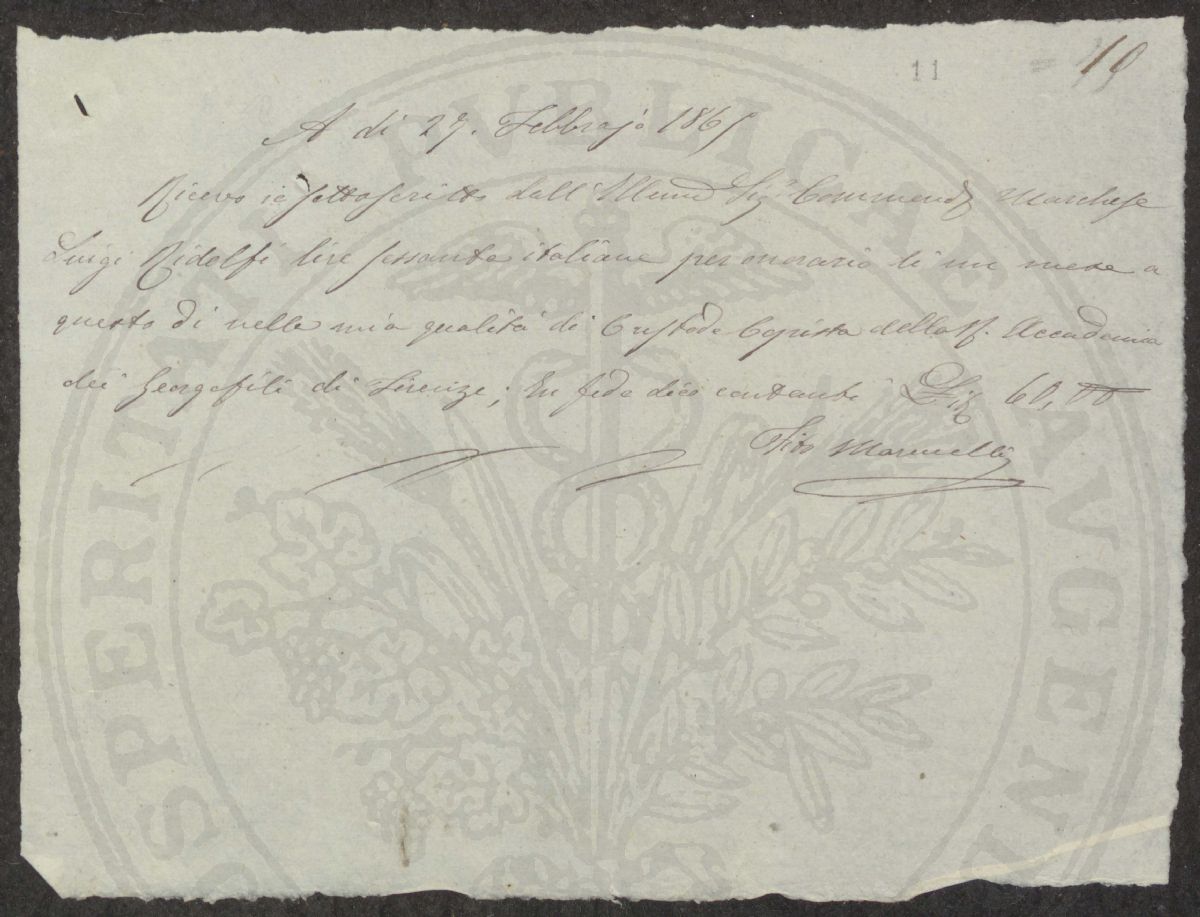 11
19
A di 27. Febbrajo 1865
Ricevo io sottoscritto dall'Illmo Sig. Commend. Marchese
Luigi Ridolfi lire sessanta italiane per onorario di un mese a
questo dì nella mia qualità di Custode Copista della R. Accademia
dei Georgofili di Firenze; In fede dico contanti 60,00
Tito Marucelli
PROSPERITATI PVBLICAE AVGENDAE